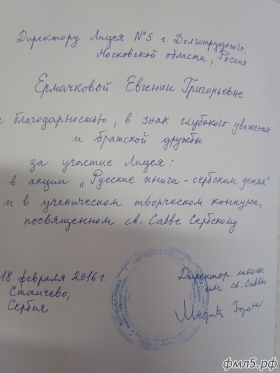 Директору Лицея №5 г. Долгопрудного
Московской области, Россия
Ермачковой Евгении Григорьевне
с благодарностью, в знак глубокого уважения
и братской дружбы
за участие Лицея:
в акции „Русские книги - сербским детям"
и в ученическом творческом конкурсе,
посвященном св. Савве Сербскому
18 февраля 2016 г.
Стайчево,
Сербия
Директор школы
им. св. Саввы
фмл5.рф